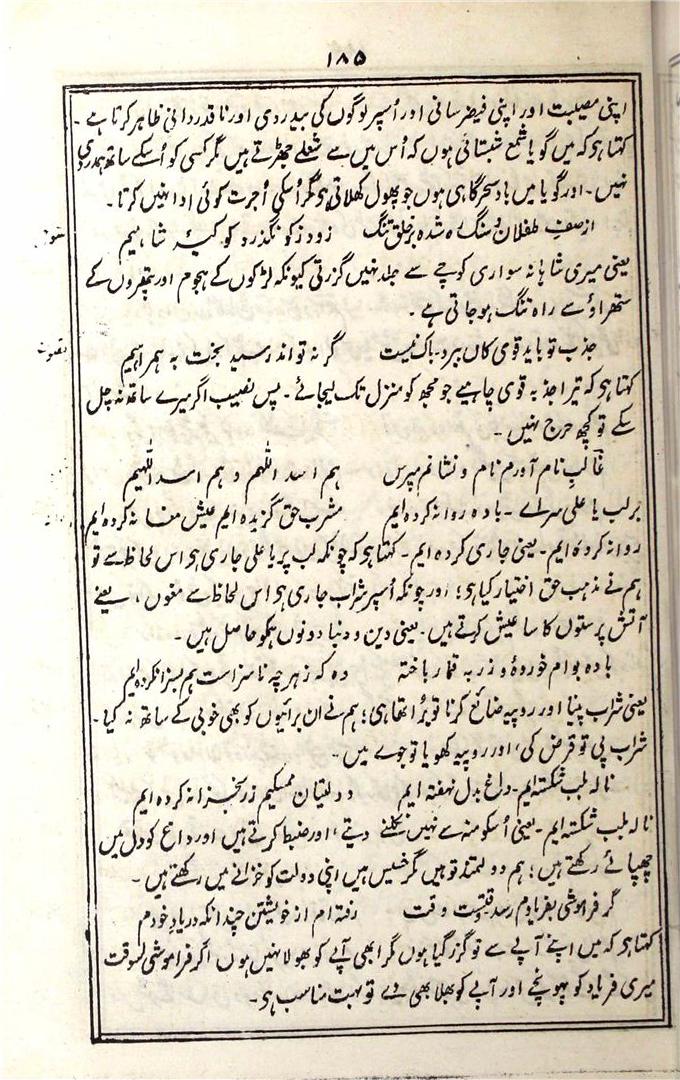 ۱۸۵
اپنی مصیبت اور اپنی فیضرسانی اور اُسپر لوگوں کی بیدردی اور ناقدردانی ظاہر کرتا ہے ۔
کہتا ہو کہ میں گویا شمع شبستانی ہوں کہ اُس میں سے شعلے جھڑتے ہیں مگر کسی کو اُسکے ساتھ ہمدردی
نہیں ۔ اور گویا میں بادِ سحرگاہی ہوں جو پھول کھلاتی ہو مگر اُسکی اُجرت کوئی ادا نہیں کرتا ۔
از صف طفلان و سنگ رہ شدہ بر خلق تنگ زود ز کو نگذرد کوکبۂ شاہیم
یعنی میری شاہانہ سواری کوچے سے جلد نہیں گزرتی کیونکہ لڑکوں کے ہجوم اور پتھروں کے
ستھراؤ سے راہ تنگ ہو جاتی ہے ۔
جذب تو باید قوی کاں ببرد باک نیست گر نہ تواند رسید بخت بہ ہمراہیم
کہتا ہو کہ تیرا جذبہ قوی چاہیے جو مجھ کو منزل تک لیجائے ۔ پس نصیب اگر میرے ساتھ نہ چل
سکے تو کچھ حرج نہیں ۔
غالبِ نام آورم نام و نشانم مپرس ہم اسد اللّٰہم و ہم اسد اللّٰہیم
بر لب یا علی سراے ۔ بادہ روانہ کردہ ایم مشرب حق گزیدہ ایم عیش مغانہ کردہ ایم
روانہ کردہ ایم ۔ یعنی جاری کردہ ایم ۔ کہتا ہو کہ چونکہ لب پر یا علی جاری ہو اس لحاظ سے تو
ہم نے مذہب حق اختیار کیا ہو؛ اور چونکہ اُسپر شراب جاری ہو اس لحاظ سے مغوں ، یعنے
آتش پرستوں کا سا عیش کرتے ہیں ۔ یعنی دین و دنیا دونوں ہمکو حاصل ہیں ۔
بادہ بوام خوردہ و زر بہ قمار باختہ وہ کہ ز ہر چہ ناسزاست ہم بسزا نکردہ ایم
یعنی شراب پینا اور روپیہ ضائع کرنا تو بُرا تھا ہی؛ ہم نے ان برائیوں کو بھی خوبی کے ساتھ نہ کیا ۔
شراب پی تو قرض کی، اور روپیہ کھویا تو جوے میں ۔
نالہ بلب شکستہ ایم ۔ داغ بدل نہفتہ ایم دولتیان ممسکیم زر بخزانہ کردہ ایم
نالہ بلب شکستہ ایم ۔ یعنی اُسکو منہ سے نہیں نکلنے دیتے، اور ضبط کرتے ہیں اور داغ کو دل میں
چھپائے رکھتے ہیں؛ ہم دولتمند تو ہیں مگر خسیس ہیں اپنی دولت کو خزانے میں رکھتے ہیں ۔
گر فراموشی بفریادم رسد وقتست وقت رفتہ ام از خویشتن چندانکہ در یاد خودم
کہتا ہو کہ میں اپنے آپے سے تو گزر گیا ہوں مگر ابھی آپے کو بھولا نہیں ہوں اگر فراموشی اسوقت
میری فریاد کو پہونچے اور آپے کو بھلا بھی دے تو بہت مناسب ہو ۔